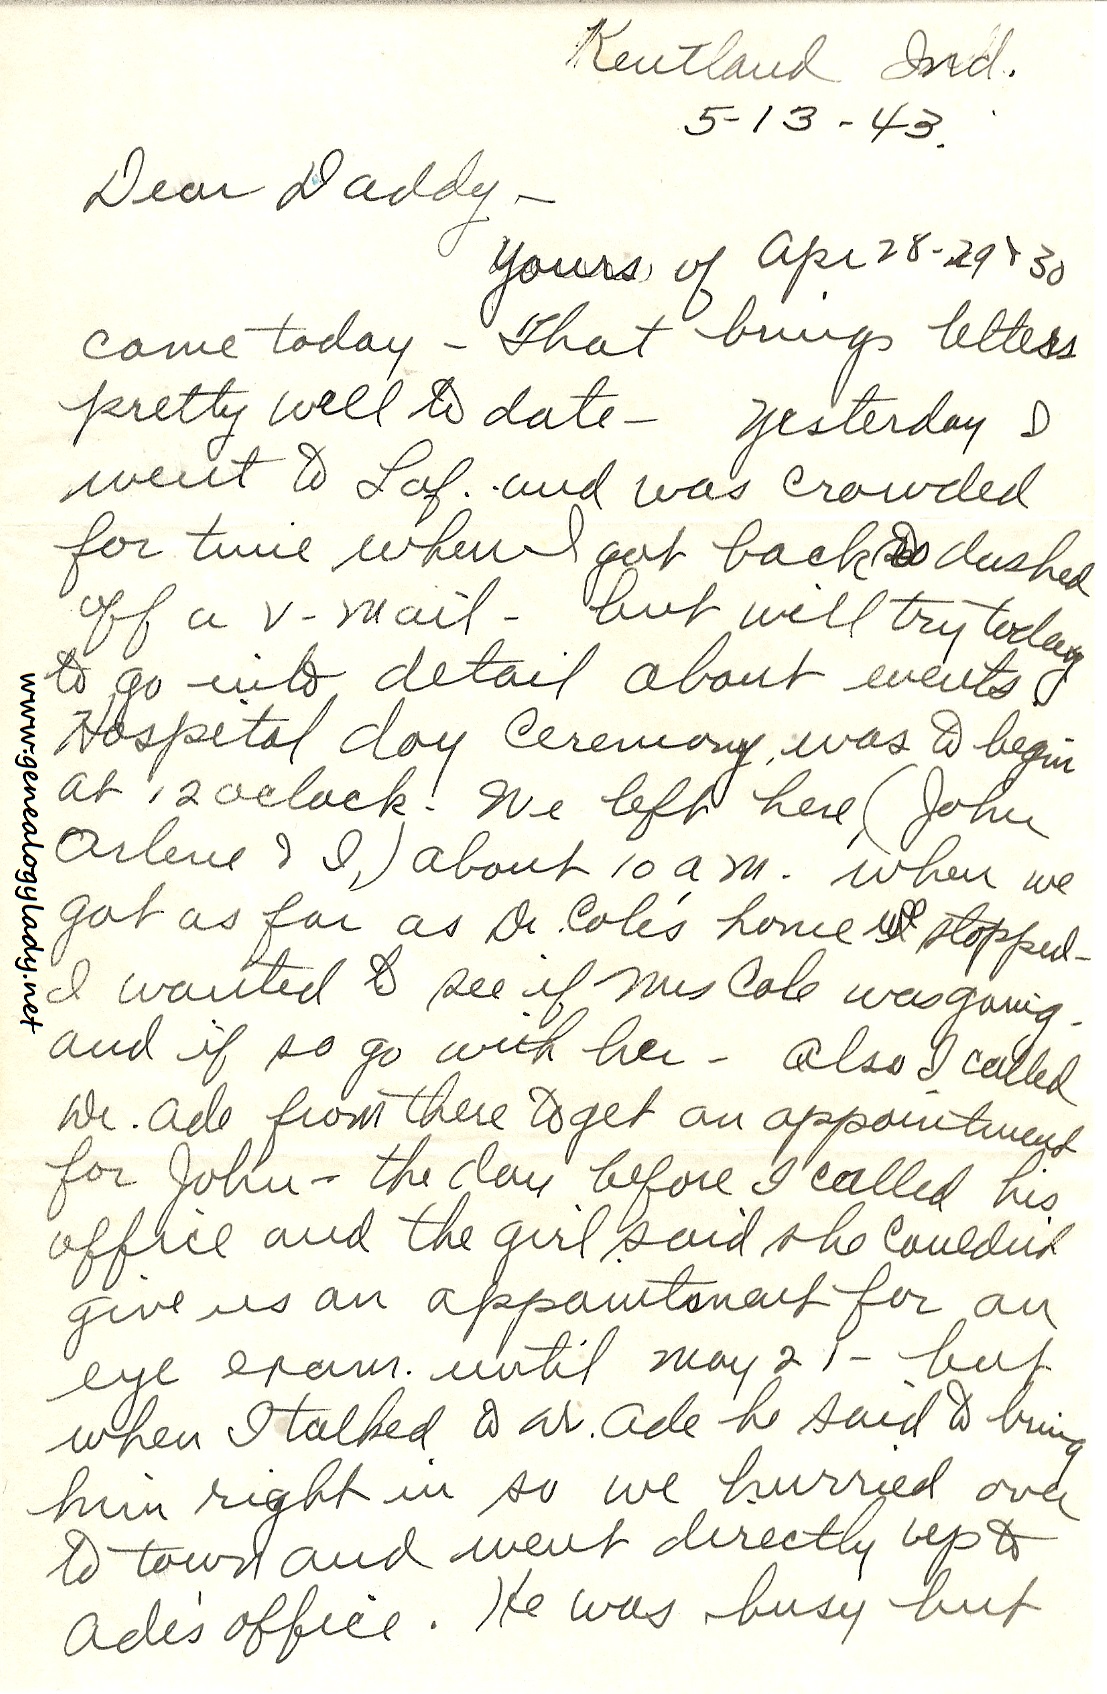 Kentland Ind.
5-13-43.
Dear Daddy -
Yours of Apr 28-29 & 30
came today - That brings letters
pretty well to date - Yesterday I
went to Laf. and was crowded
for time when I got back so dashed
off a V-mail - but will try today
to go into detail about events.
Hospital day ceremony, was to begin
at 12 oclock. We left here (John
Arlene & I,) about 10 a.m. When we
got as far as Dr. Cole's home we stopped -
I wanted to see if Mrs Cole was going -
and if so go with her - Also I called
Dr. Ade from there to get an appointment
for John - the day before I called his
office and the girl said she couldn't
give us an appointment for an
eye exam. until May 21 - but
when I talked to Dr. Ade he said to bring
him right in so we hurried over
to town and went directly up to
Ade's office. He was busy but
www.genealogylady.net